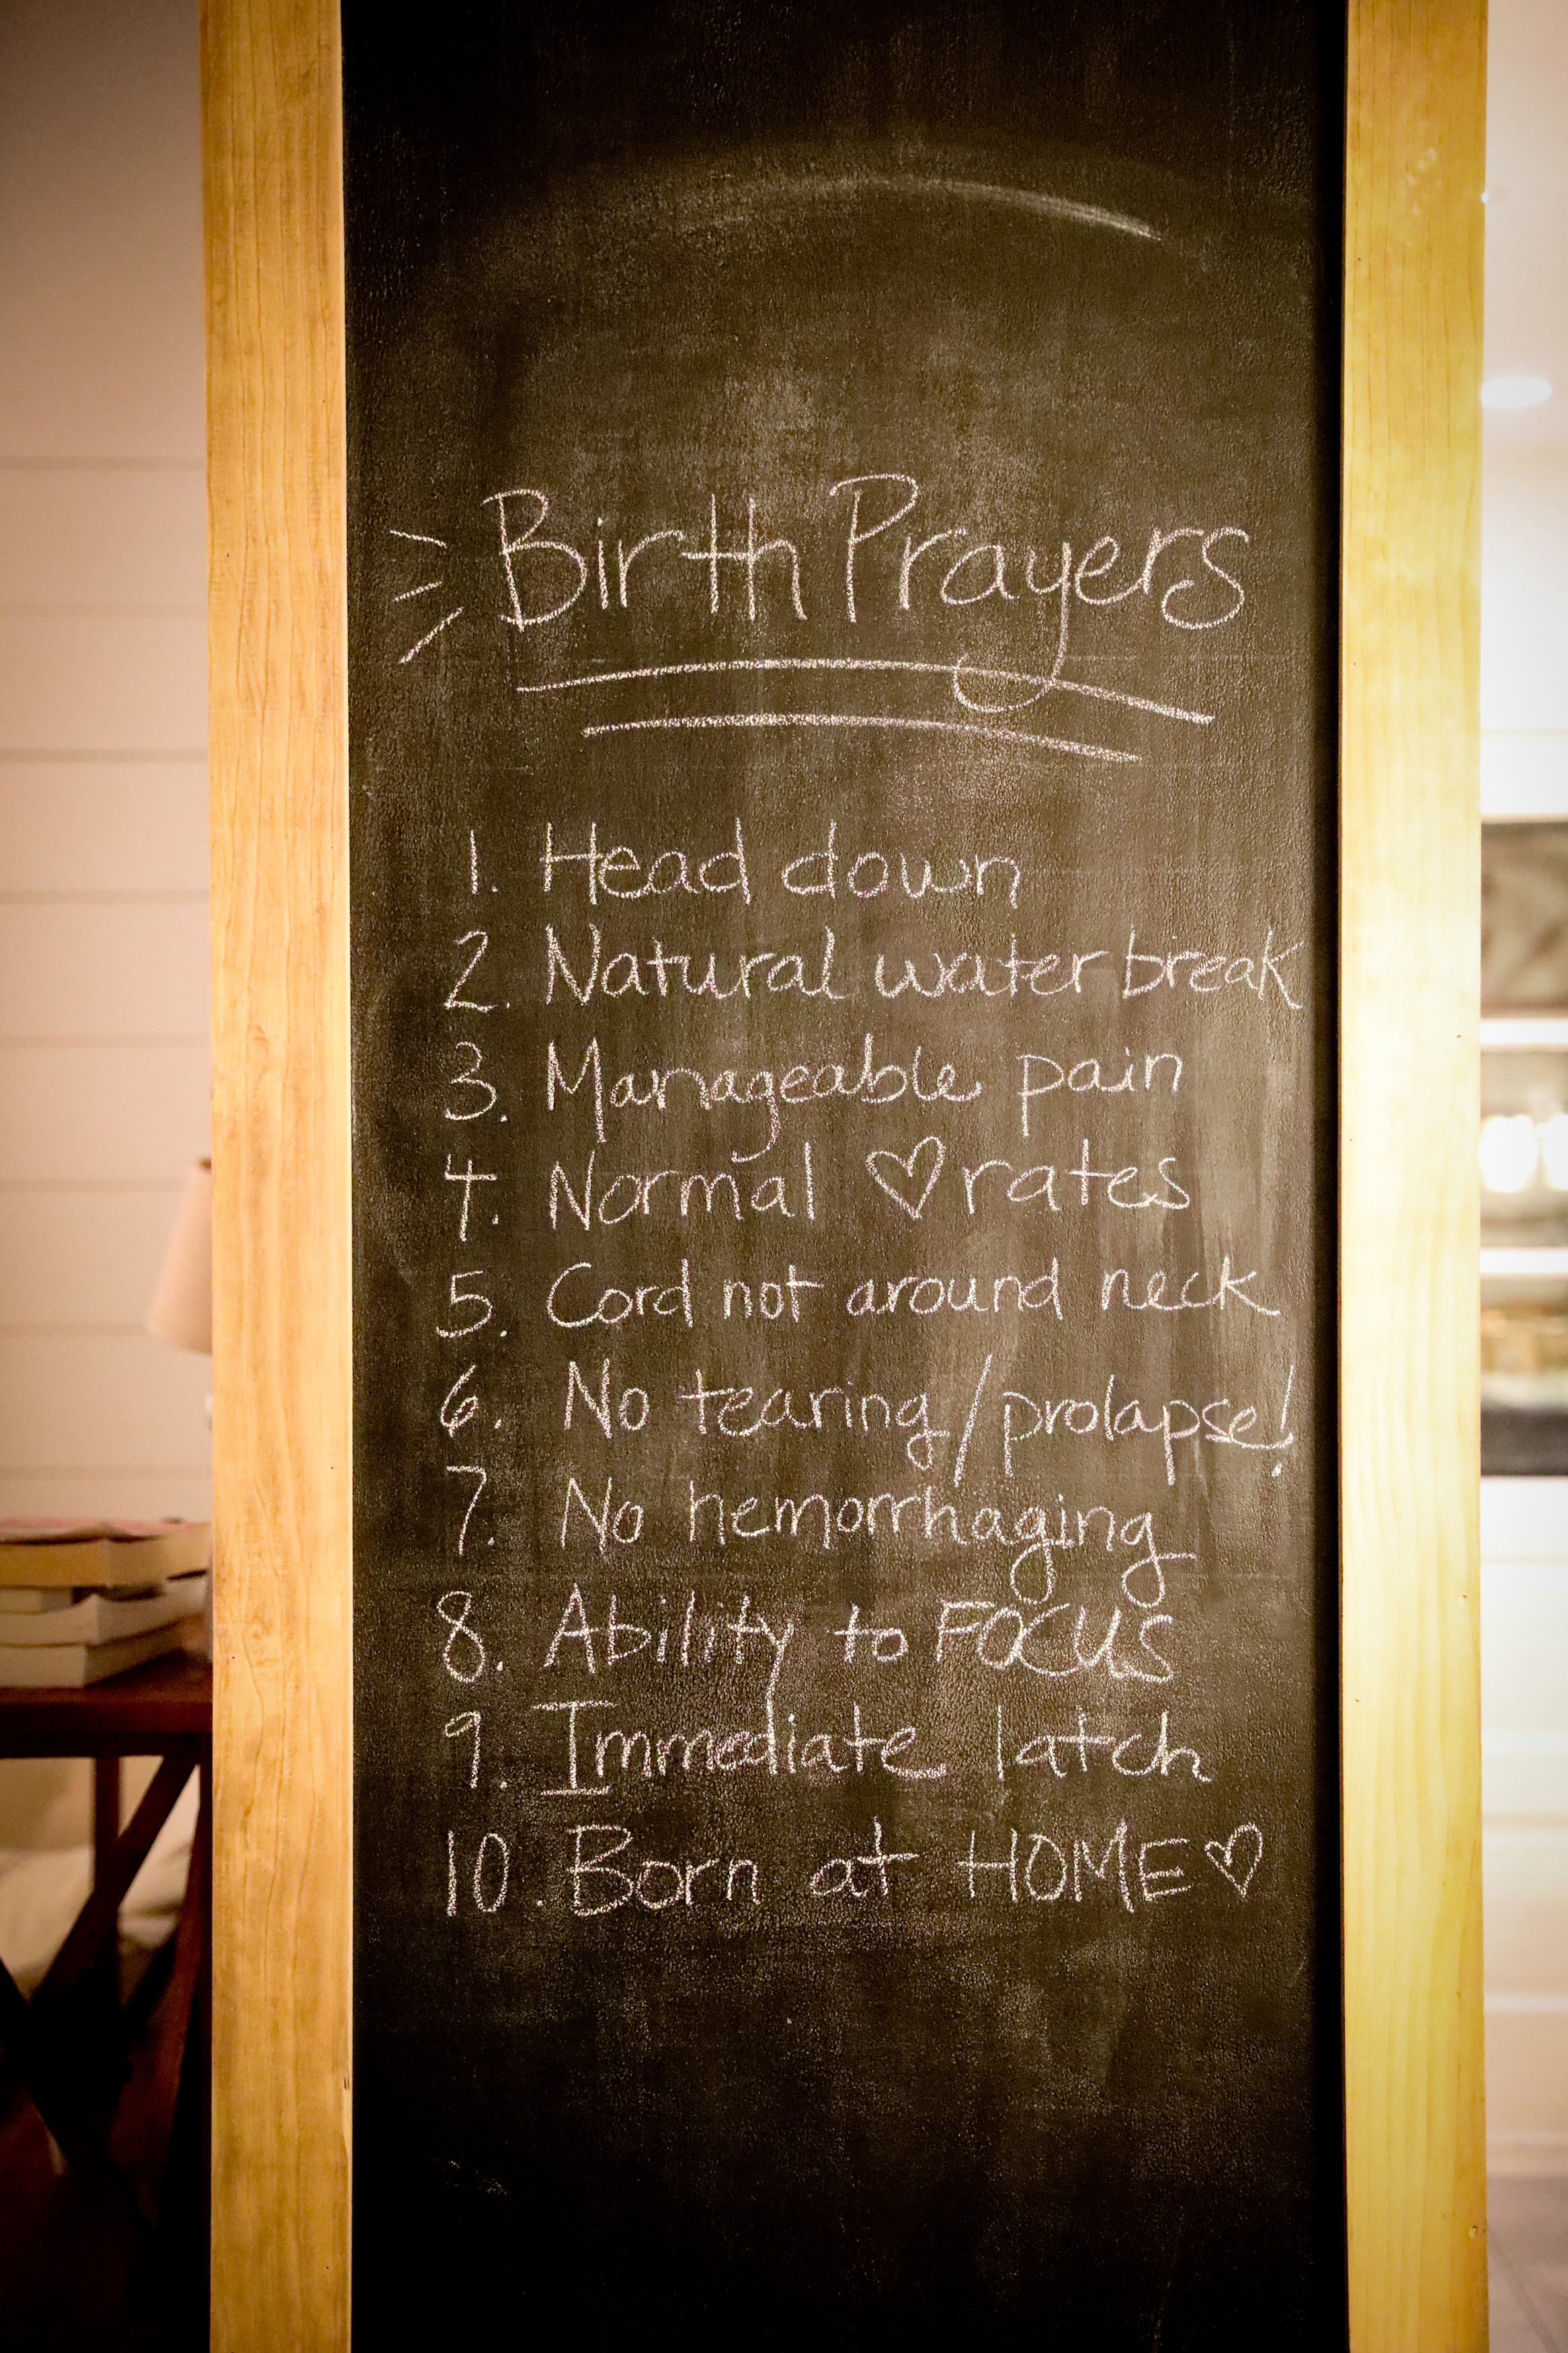 Birth Prayers
1. Head down
2. Natural water break
3. Manageable pain
4. Normal ♡ rates
5. Cord not around neck
6. No tearing/prolapse!
7. No hemorrhaging
8. Ability to FOCUS
9. Immediate latch
10. Born at HOME♡